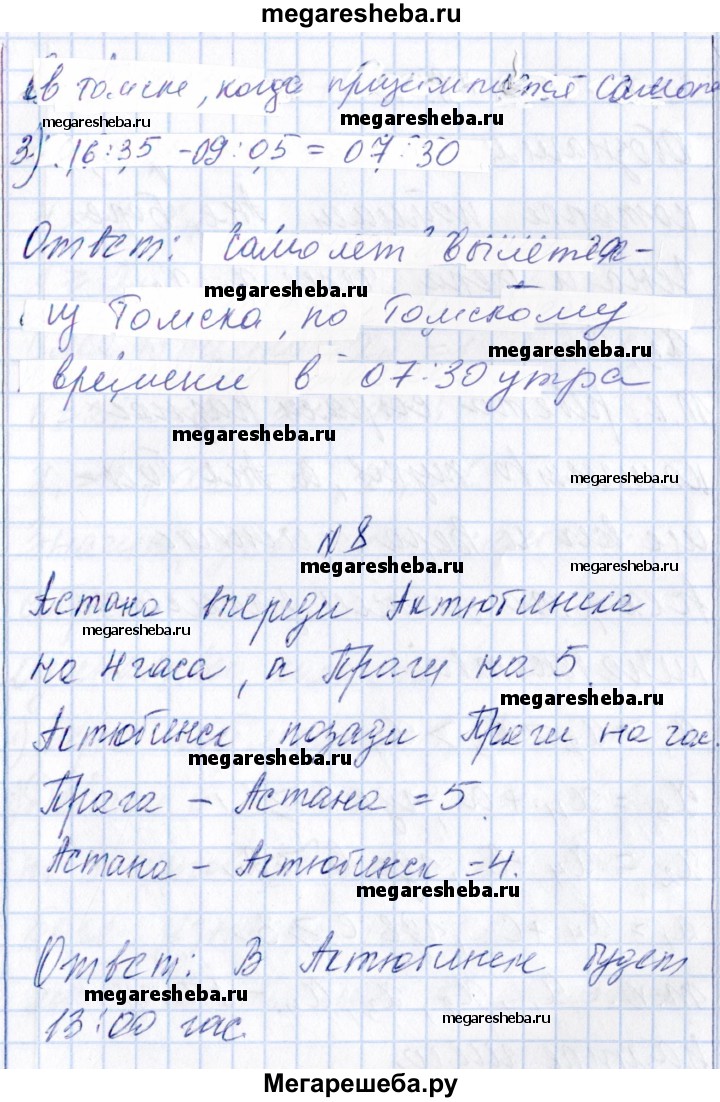 megaresheba.ru
в томске, когда приземлился самолё
megaresheba.ru
megaresheba.ru
3) 16:35 - 09:05 = 07:30
Ответ: Самолет вылетел
megaresheba.ru
из Томска, по Томскому
megaresheba.ru
времени в 07:30 утра
megaresheba.ru
megaresheba.ru
N 8
megaresheba.ru
Астана впереди Актюбинска
megaresheba.ru
на 4 часа, а Праги на 5.
megaresheba.ru
Актюбинск позади Праги на час.
megaresheba.ru
Прага - Астана = 5.
Астана - Актюбинск = 4.
megaresheba.ru
Ответ: В Актюбинске будет
megaresheba.ru
13:00 час.
megaresheba.ru
Мегарешеба.ру